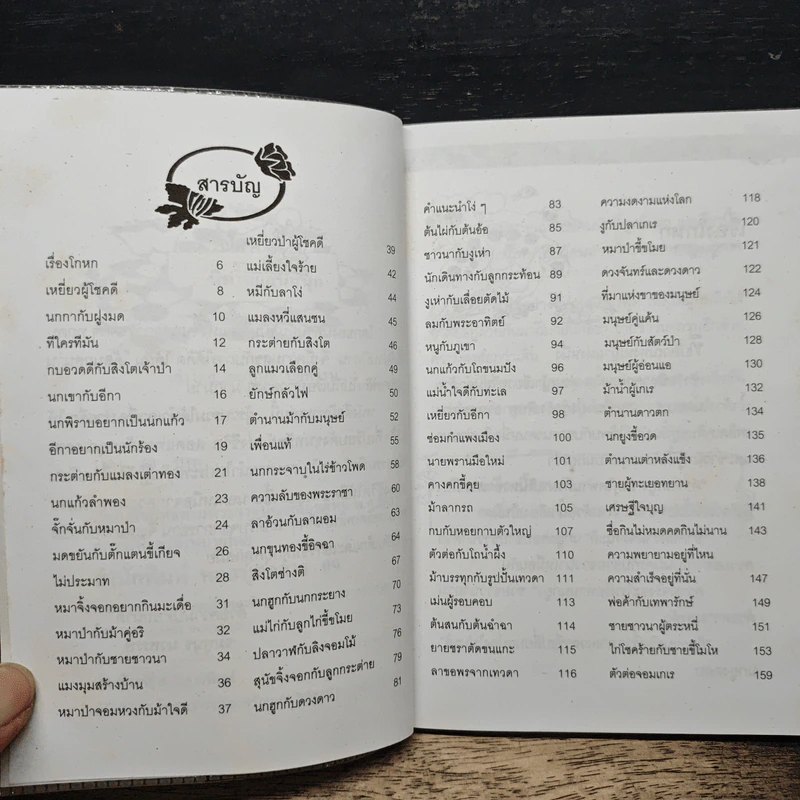 สารบัญ
เรื่องโกหก 6
เหยี่ยวผู้โชคดี 8
นกกากับฝูงมด 10
ทีใครทีมัน 12
กบอวดดีกับสิงโตเจ้าป่า 14
นกเขากับอีกา 16
นกพิราบอยากเป็นนกแก้ว 17
อีกาอยากเป็นนักร้อง 19
กระต่ายกับแมลงเต่าทอง 21
นกแก้วลำพอง 23
จั๊กจั่นกับหมาป่า 24
มดขยันกับตั๊กแตนขี้เกียจ 26
ไม่ประมาท 28
หมาจิ้งจอกอยากกินมะเดื่อ 31
หมาป่ากับม้าคู่อริ 32
หมาป่ากับชายชาวนา 34
แมงมุมสร้างบ้าน 36
หมาป่าจอมหวงกับม้าใจดี 37
เหยี่ยวป่าผู้โชคดี 39
แม่เลี้ยงใจร้าย 42
หมีกับลาโง่ 44
แมลงหวี่แสนซน 45
กระต่ายกับสิงโต 46
ลูกแมวเลือกคู่ 49
ยักษ์กลัวไฟ 50
ตำนานม้ากับมนุษย์ 52
เพื่อนแท้ 55
นกกระจาบในไร่ข้าวโพด 58
ความลับของพระราชา 60
ลาอ้วนกับลาผอม 63
นกขุนทองขี้อิจฉา 64
สิงโตช่างติ 67
นกฮูกกับนกกระยาง 70
แม่ไก่กับลูกไก่ขี้ขโมย 73
ปลาวาฬกับลิงจอมโม้ 76
สุนัขจิ้งจอกกับลูกกระต่าย 79
นกฮูกกับดวงดาว 81
คำแนะนำโง่ ๆ 83
ต้นไผ่กับต้นอ้อ 85
ชาวนากับงูเห่า 87
นักเดินทางกับลูกกระท้อน 89
งูเห่ากับเลื่อยตัดไม้ 91
ลมกับพระอาทิตย์ 92
หนูกับภูเขา 94
นกแก้วกับโถขนมปัง 96
แม่น้ำใจดีกับทะเล 97
เหยี่ยวกับอีกา 98
ซ่อมกำแพงเมือง 100
นายพรานมือใหม่ 101
คางคกขี้คุย 103
ม้าลากรถ 105
กบกับหอยกาบตัวใหญ่ 107
ตัวต่อกับโถน้ำผึ้ง 110
ม้าบรรทุกกับรูปปั้นเทวดา 111
เม่นผู้รอบคอบ 113
ต้นสนกับต้นฉำฉา 114
ยายชราตัดขนแกะ 115
ลาขอพรจากเทวดา 116
ความงดงามแห่งโลก 118
งูกับปลาเกเร 120
หมาป่าขี้ขโมย 121
ดวงจันทร์และดวงดาว 122
ที่มาแห่งขาของมนุษย์ 124
มนุษย์คู่แค้น 126
มนุษย์กับสัตว์ป่า 128
มนุษย์ผู้อ่อนแอ 130
ม้าน้ำผู้เกเร 132
ตำนานดาวตก 134
นกยูงขี้อวด 135
ตำนานเต่าหลังแข็ง 136
ชายผู้ทะเยอทยาน 138
เศรษฐีใจบุญ 141
ซื่อกินไม่หมดคดกินไม่นาน 143
ความพยายามอยู่ที่ไหน
ความสำเร็จอยู่ที่นั่น 147
พ่อค้ากับเทพารักษ์ 149
ชายชาวนาผู้ตระหนี่ 151
ไก่โชคร้ายกับชายขี้โมโห 153
ตัวต่อจอมเกเร 159